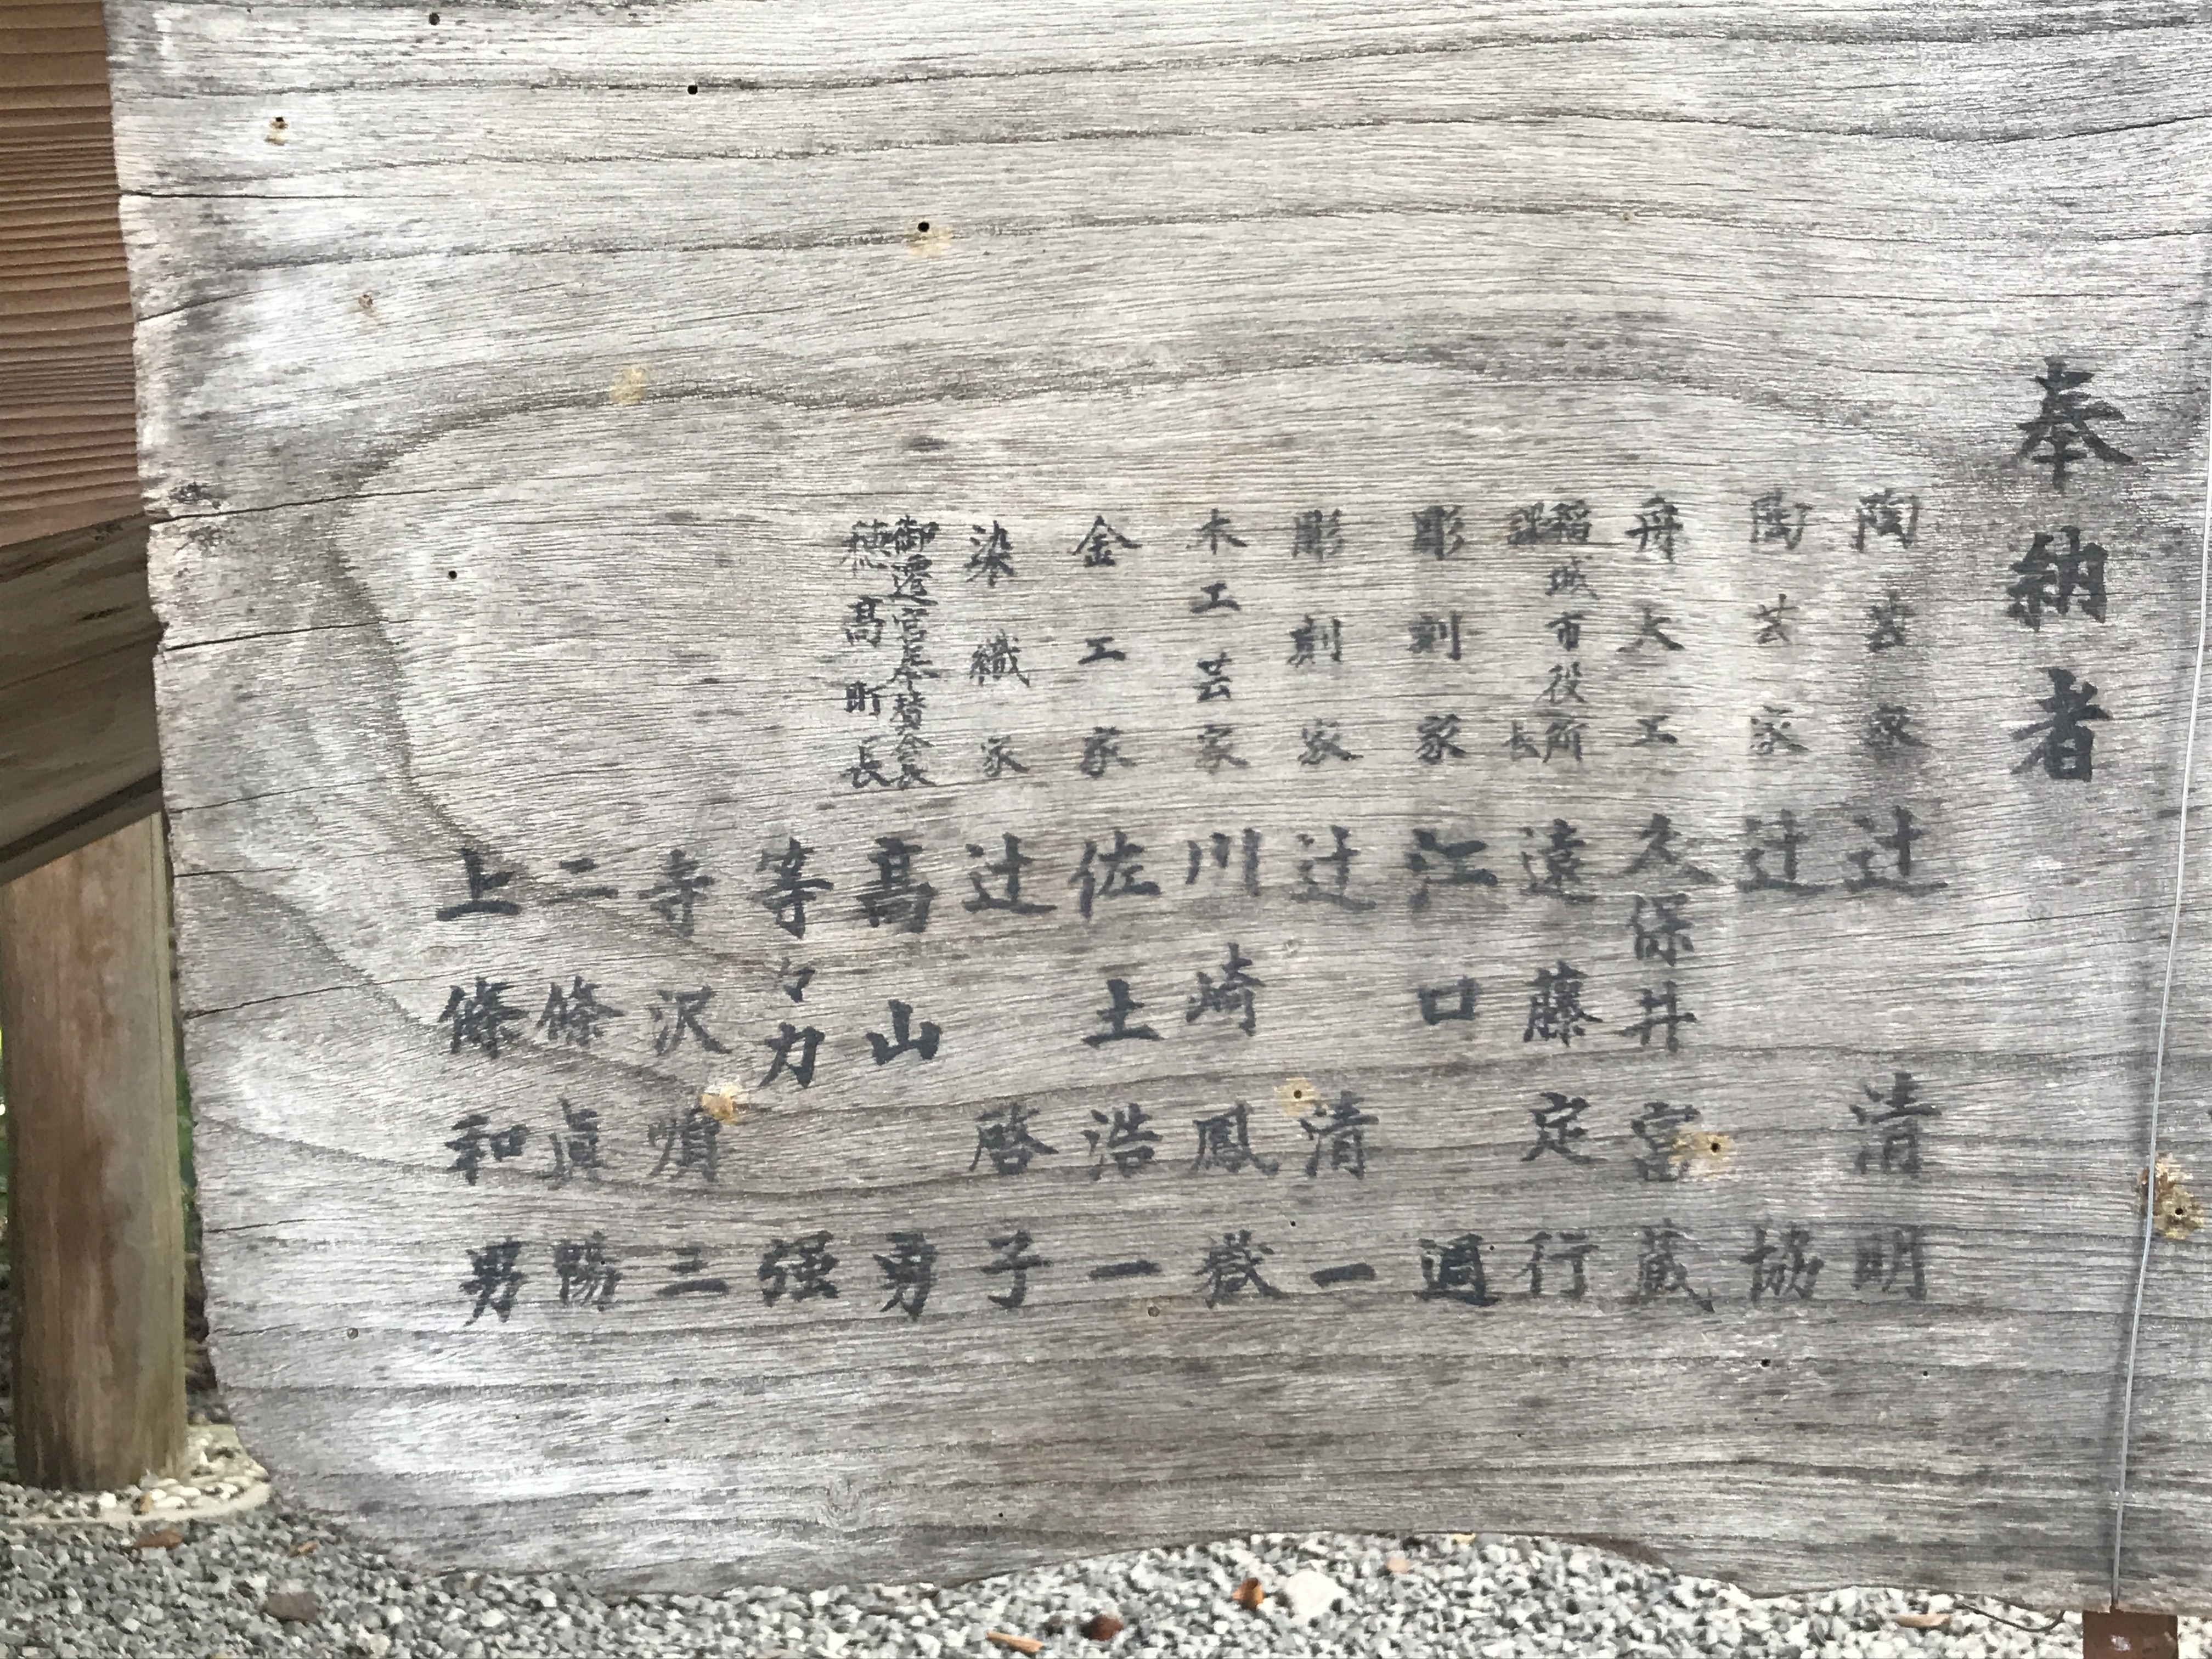 奉納者
陶芸家 辻 清明
陶芸家 辻 協
舟大工 久保井富蔵
稲城市役所
課長 遠藤定行
彫刻家 江口週
彫刻家 辻 清一
木工芸家 川崎鳳嶽
金工家 佐土浩一
染織家 辻 啓子
御遷宮奉賛会長
穂高町長 高山勇
等々力强
寺沢順三
二條眞暢
上條和男